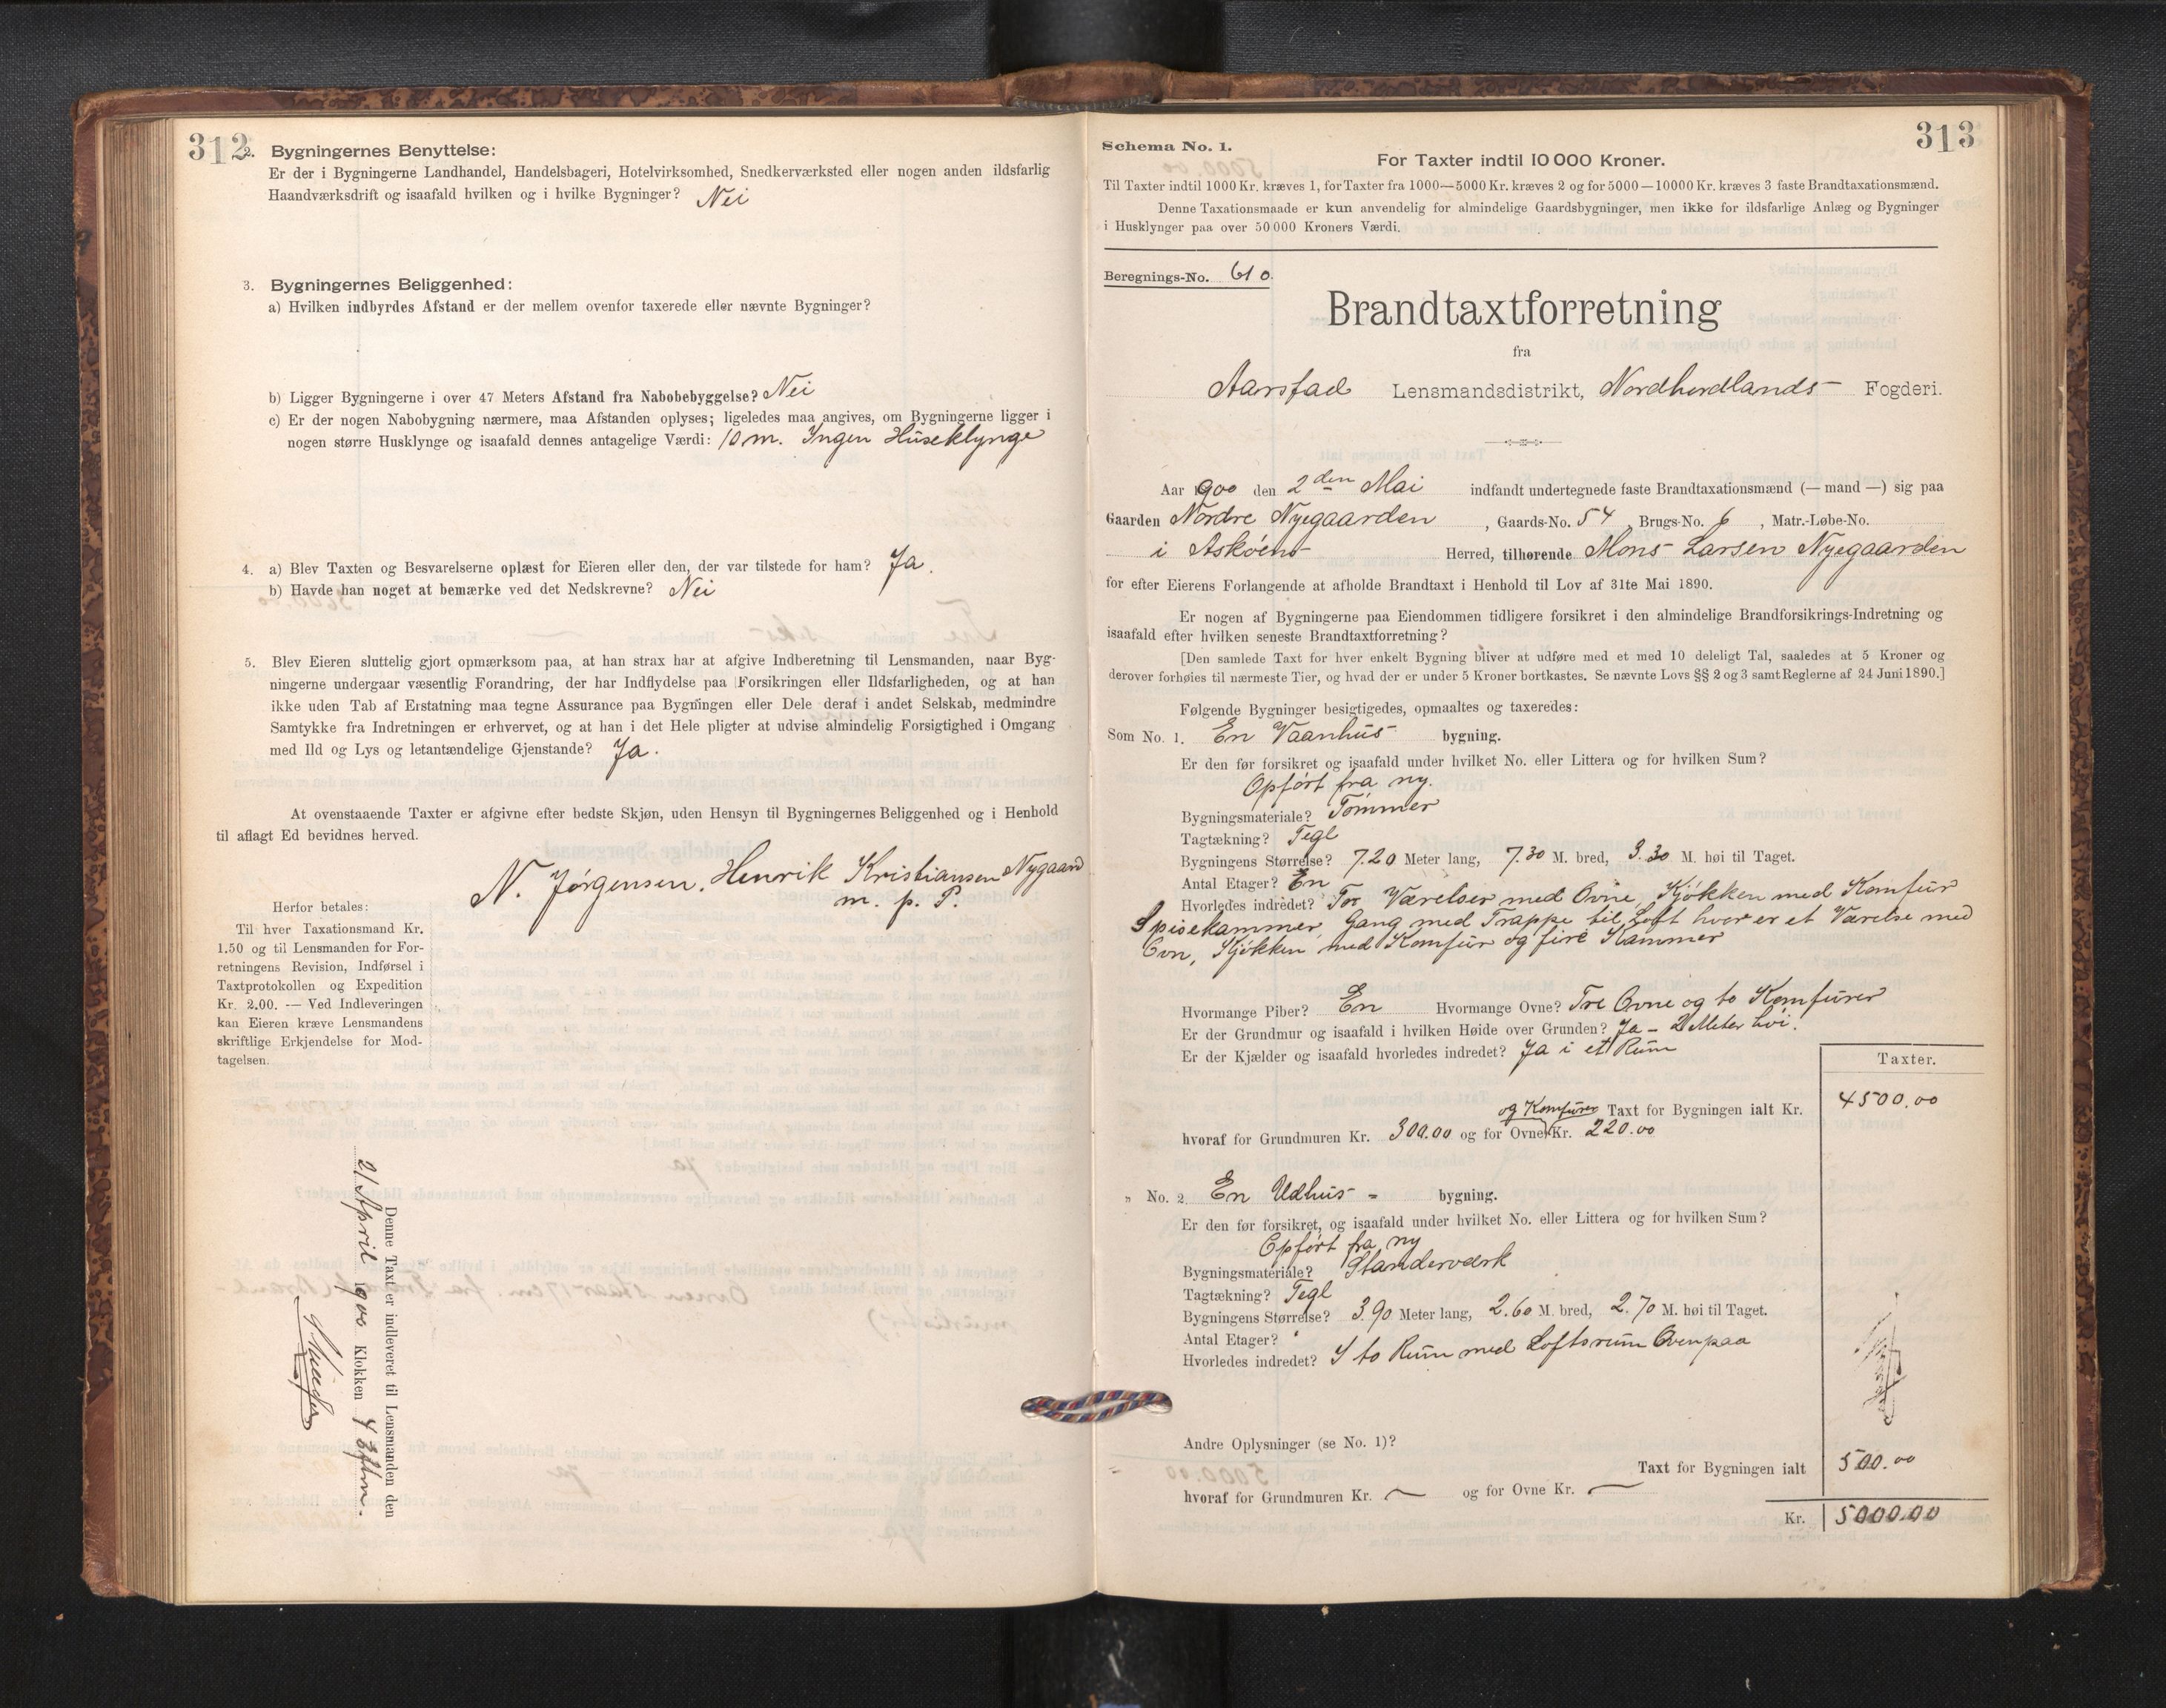 312
2. Bygningernes Benyttelse:
Er der i Bygningerne Landhandel, Handelsbageri, Hotelvirksomhed, Snedkerværksted eller nogen anden ildsfarlig
Haandværksdrift og isaafald hvilken og i hvilke Bygninger? Nei
3. Bygningernes Beliggenhed:
a) Hvilken indbyrdes Afstand er der mellem ovenfor taxerede eller nævnte Bygninger?
b) Ligger Bygningerne i over 47 Meters Afstand fra Nabobebyggelse? Nei
c) Er der nogen Nabobygning nærmere, maa Afstanden oplyses; ligeledes maa angives, om Bygningerne ligger i
nogen større Husklynge og isaafald dennes antagelige Værdi: 10 m. Ingen Huseklynge
4. a) Blev Taxten og Besvarelserne oplæst for Eieren eller den, der var tilstede for ham? Ja.
b) Havde han noget at bemærke ved det Nedskrevne? Nei
5. Blev Eieren sluttelig gjort opmærksom paa, at han strax har at afgive Indberetning til Lensmanden, naar Byg-
ningerne undergaar væsentlig Forandring, der har Indflydelse paa Forsikringen eller Ildsfarligheden, og at han
ikke uden Tab af Erstatning maa tegne Assurance paa Bygningen eller Dele deraf i andet Selskab, medmindre
Samtykke fra Indretningen er erhvervet, og at han i det Hele pligter at udvise almindelig Forsigtighed i Omgang
med Ild og Lys og letantændelige Gjenstande? Ja.
At ovenstaaende Taxter er afgivne efter bedste Skjøn, uden Hensyn til Bygningernes Beliggenhed og i Henhold
til aflagt Ed bevidnes herved.
N. Jørgensen. Henrik Kristiansen Nygaard
m. p. P.
Herfor betales:
Til hver Taxationsmand Kr.
1.50 og til Lensmanden for For-
retningens Revision, Indførsel i
Taxtprotokollen og Expedition
Kr. 2.00. — Ved Indleveringen
kan Eieren kræve Lensmandens
skriftlige Erkjendelse for Mod-
tagelsen.
Denne Taxt er indleveret til Lensmanden den
21 April 1900 Klokken 4 Eftm.
313
Schema No. 1.
For Taxter indtil 10 000 Kroner.
Til Taxter indtil 1000 Kr. kræves 1, for Taxter fra 1000—5000 Kr. kræves 2 og for 5000—10000 Kr. kræves 3 faste Brandtaxationsmænd.
Denne Taxationsmaade er kun anvendelig for almindelige Gaardsbygninger, men ikke for ildsfarlige Anlæg og Bygninger
i Husklynger paa over 50 000 Kroners Værdi.
Beregnings-No. 610.
Brandtaxtforretning
fra
Aarstad Lensmandsdistrikt, Nordhordlands Fogderi.
Aar 1900 den 2den Mai indfandt undertegnede faste Brandtaxationsmænd (— mand —) sig paa
Gaarden Nordre Nyegaarden, Gaards-No. 54, Brugs-No. 6, Matr.-Løbe-No.
i Askøens Herred, tilhørende Mons Larsen Nyegaarden
for efter Eierens Forlangende at afholde Brandtaxt i Henhold til Lov af 31te Mai 1890.
Er nogen af Bygningerne paa Eiendommen tidligere forsikret i den almindelige Brandforsikrings-Indretning og
isaafald efter hvilken seneste Brandtaxtforretning?
[Den samlede Taxt for hver enkelt Bygning bliver at udføre med et med 10 deleligt Tal, saaledes at 5 Kroner og
derover forhøies til nærmeste Tier, og hvad der er under 5 Kroner bortkastes. Se nævnte Lovs §§ 2 og 3 samt Reglerne af 24 Juni 1890.]
Følgende Bygninger besigtigedes, opmaaltes og taxeredes:
Som No. 1. En Vaanhus bygning.
Er den før forsikret og isaafald under hvilket No. eller Littera og for hvilken Sum?
Opført fra ny.
Bygningsmateriale? Tømmer
Tagtækning? Tegl
Bygningens Størrelse? 7.20 Meter lang, 7.30 M. bred, 3.30 M. høi til Taget.
Antal Etager? En
Hvorledes indredet? To Værelser med Ovne, Kjøkken med Komfur
Spisekammer, Gang med Trappe til Loft hvor er et Værelse med
Ovn, Kjøkken med Komfur og fire Kammer
Hvormange Piber? En Hvormange Ovne? Tre Ovne og to Komfurer
Er der Grundmur og isaafald i hvilken Høide over Grunden? Ja - 2 Meter høi.
Er der Kjælder og isaafald hvorledes indredet? Ja i et Rum
Taxter.
og Komfurer Taxt for Bygningen ialt Kr. 4500.00
hvoraf for Grundmuren Kr. 300.00 og for Ovne Kr. 220.00
„ No. 2. En Udhus - bygning.
Er den før forsikret, og isaafald under hvilket No. eller Littera og for hvilken Sum?
Opført fra ny
Bygningsmateriale? Standerværk
Tagtækning? Tegl
Bygningens Størrelse? 3.90 Meter lang, 2.60 M. bred, 2.70 M. høi til Taget.
Antal Etager?
Hvorledes indredet? I to Rum med Loftsrum Ovenpaa
Andre Oplysninger (se No. 1)?
Taxt for Bygningen ialt 500.00
hvoraf for Grundmuren Kr. — og for Ovne Kr. —
Kr. 5000.00